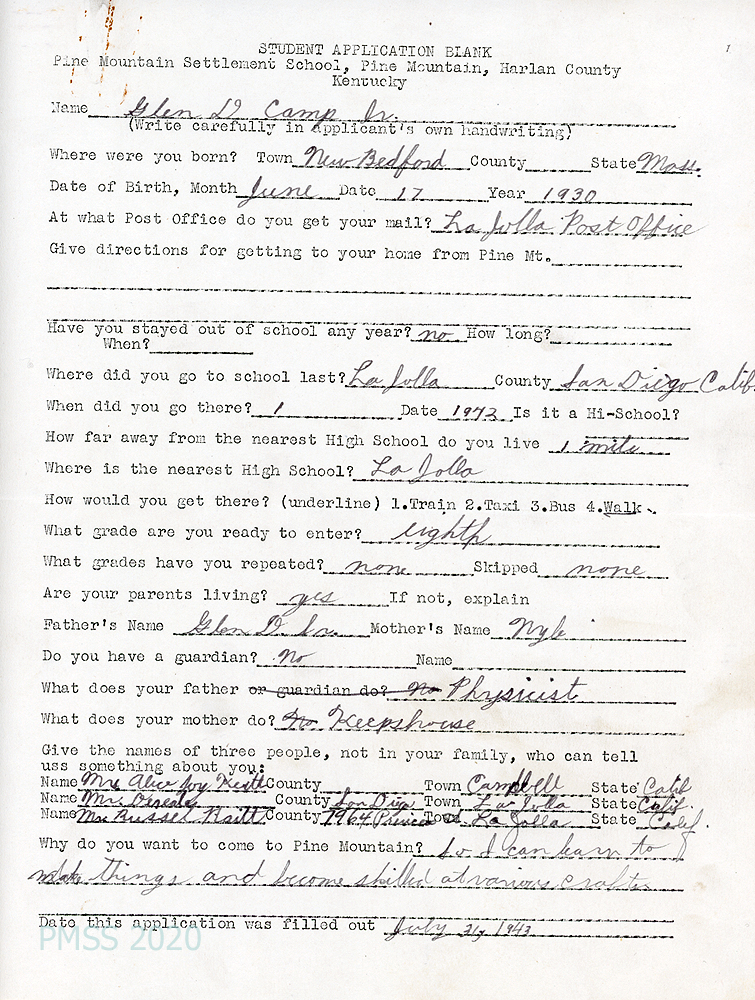 STUDENT APPLICATION BLANK
Pine Mountain Settlement School, Pine Mountain, Harlan County
Kentucky
Name Glen D Camp Jr.
(Write carefully in applicant's own handwriting)
Where were you born? Town New Bedford County State Mass.
Date of Birth, Month June Date 17 Year 1930
At what Post Office do you get your mail? La Jolla Post Office
Give directions for getting to your home from Pine Mt.
Have you stayed out of school any year? no How long?
When?
Where did you go to school last? La Jolla County San Diego Calif.
When did you go there? 1 Date 1942 Is it a Hi-School?
How far away from the nearest High School do you live 1 mile
Where is the nearest High School? La Jolla
How would you get there? (underline) 1.Train 2.Taxi 3.Bus 4.Walk
What grade are you ready to enter? eighth
What grades have you repeated? none Skipped none
Are your parents living? yes If not, explain
Father's Name Glen D. Sr. Mother's Name Nyle
Do you have a guardian? No Name
What does your father or guardian do? No Physicist
What does your mother do? No Keepshouse
Give the names of three people, not in your family, who can tell
uss something about you:
Name Mrs Alice Joy County Town Campbell State Calif
Name Mrs. County San Diego Town La Jolla State Calif.
Name Mrs Russel Raitt County 1964 Town La Jolla State Calif.
Why do you want to come to Pine Mountain? So I can learn to
make things and become skilled at various crafts
Date this application was filled out July 31, 1943
PMSS 2020
1